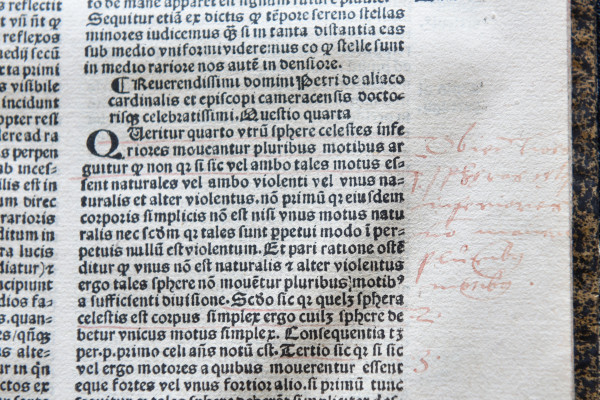 s reflectit
vn̄ it qͥ
reflexos
medij secū
cta primi
s visibile
incidunt
opter rest
dere ad ra
s perpen
ab incef-
ilis est in
um direc
rarioris
ditum in
ra lucis
diatur)⁊
acipiunt
dios fa-
s.quan-
es/qn̄qꝫ
s alte-
ur in qn̄
ctos ex
to de mane apparet
Sequitur etiā ex dictis qͥ tēpore sereno stellas
minores iudicemus qͣꝫ si in tanta distantia eas
sub medio vniformi videremus eo qͥ stelle sunt
in medio rariore nos autē in densiore.
¶ Reuerendissimi domini Petri de aliaco
cardinalis et episcopi cameracensis docto-
risqꝫ celebratissimi. Questio quarta
QVeritur quarto vtrū sphere celestes infe
riores moueantur pluribus motibus ar
guitur qͥ non qꝛ si sic vel ambo tales motus es-
sent naturales vel ambo violenti vel vnus na-
turalis et alter violentus. nō primū qꝛ eiusdem
corporis simplicis nō est nisi vnus motus natu
ralis nec scd̄m qꝛ tales sunt ꝑpetui modo ī per-
petuis nullū est violentum. Et pari ratione ostē
ditur qͥ vnus nō est naturalis ⁊ alter violentus
ergo tales sphere nō mouētur pluribus)motibꝰ
a sufficienti diuisione. Scd̄o sic qꝛ quelꝫ sphera
celestis est corpus simplex ergo cuilꝫ sphere de-
betur vnicus motus simplex. Consequentia tꝫ
per.p.primo celi an̄s notū est. Tertio sic qꝛ si sic
vel ergo motores a quibus mouerentur essent
eque fortes vel vnus fortior alio. si primū tunc
inferiores
no
pluribꝰ
motibꝰ.
2
3